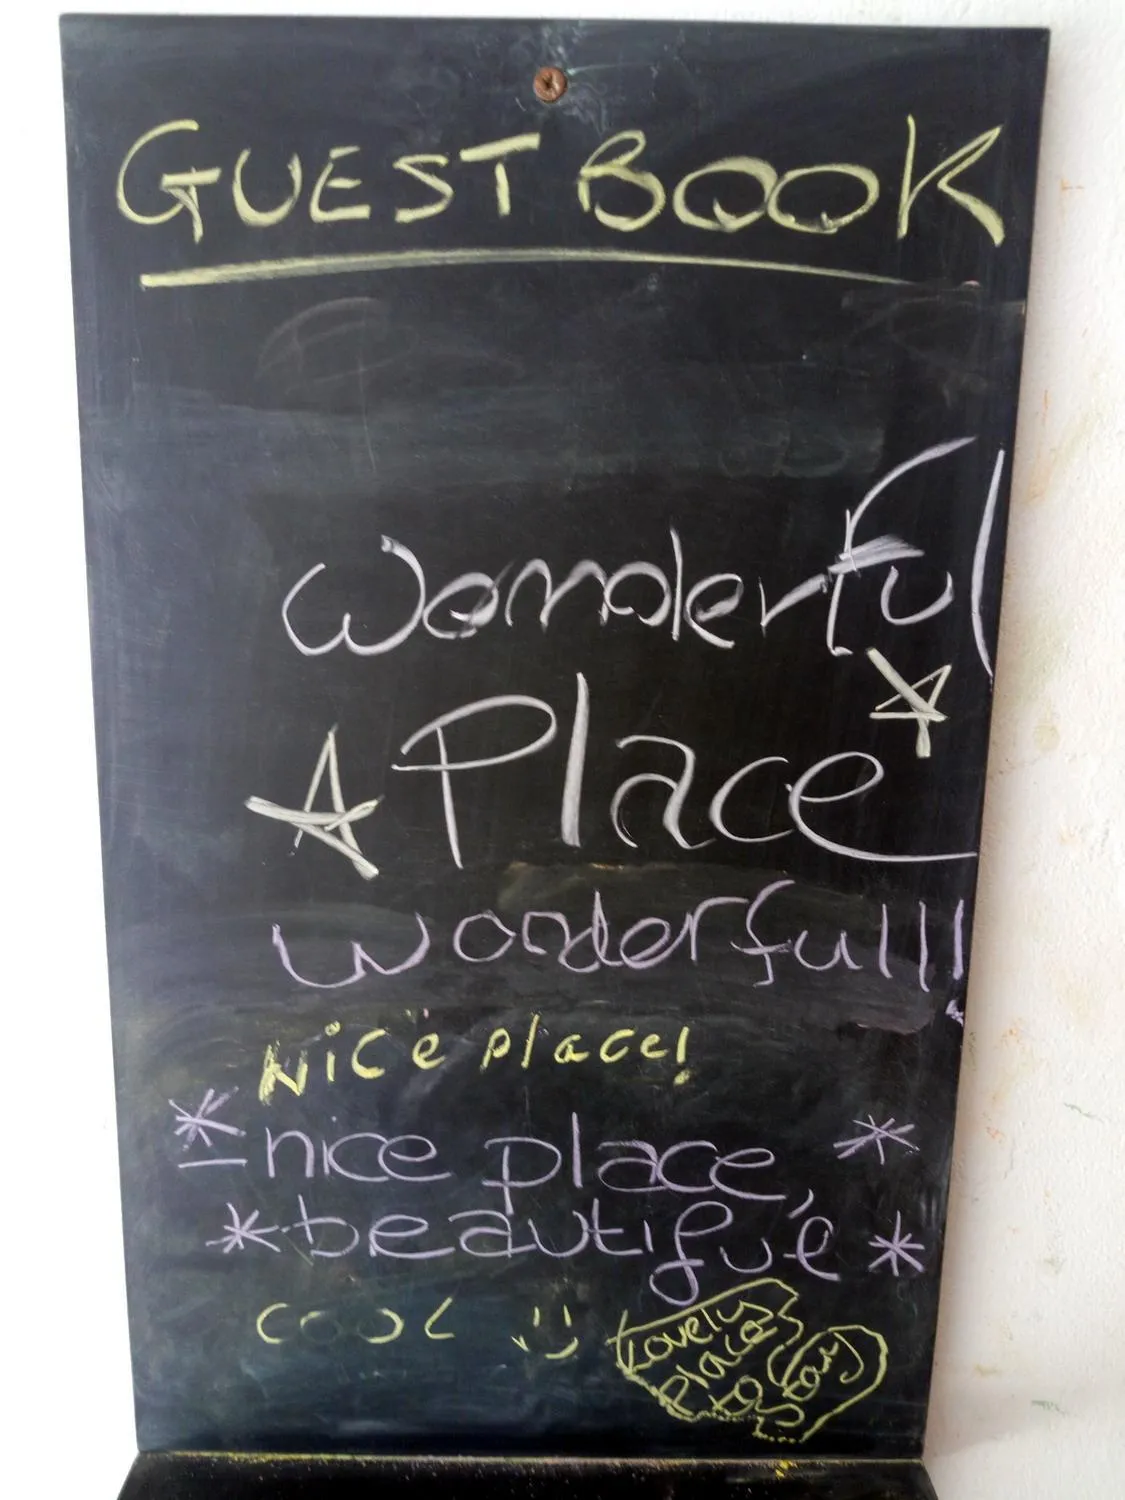 GUEST BOOK
Wonderful
Place
wonderful!!
Nice place!
nice place,
beautiful
COOL :)
Lovely
place
to
stay